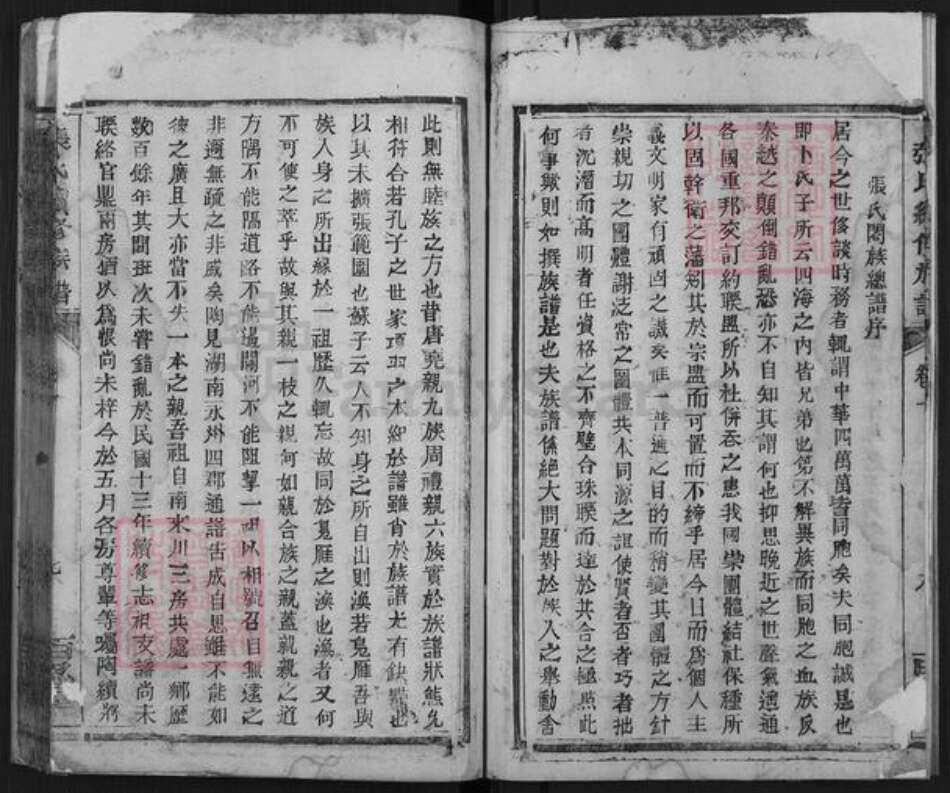 張氏閤族總譜序
居今之世侈談時務者輒謂中華四萬萬皆同胞矣夫同胞誠是也
即卜氏子所云四海之內皆兄弟也第不解異族而同胞之血族反
秦越之顛倒錯亂恐亦不自知其謂何也抑思晚近之世聲氣通通
各國重邦交訂約聯盟所以杜併吞之患我國崇團體結社保種所
以固幹衛之藩矧其於宗盟而可置而不締乎居今日而為個人主
義文明家有頑固之譏矣惟一普通之目的而稍變其團體之方針
崇親切之團體謝泛常之團體共本同源之誼使賢者否者巧者拙
者沉潛而高明者任資格之不齊璧合珠聯而達於共合之極點此
何事歟則如撰族譜是也夫族譜係絕大問題對於族人之舉動舍
此則無睦族之方也昔唐堯親九族周禮親六族實於族譜狀態先
相符合若孔子之世家項羽之本紀於譜雖肖於族譜尤有缺點也
以其未擴張範圍也蘇子云人不知身之所自出則渙若鳧雁吾與
族人身之所出緣於一祖歷久輒忘故同於鳧雁之渙也渙者又何
不可使之萃乎故與其親一枝之親何如親合族之親蓋親親之道
方隅不能隔道路不能邊關河不能阻擊一祖以相號召自無遠之
非邇無疏之非戚矣陶見湖南永州四郡通譜告成自思雖不能如
彼之廣且大亦當不失一本之親吾祖自南水川三房共處一鄉歷
數百餘年其間班次未嘗錯亂於民國十三年續修志祖支譜尚未
聯絡官鼎兩房猶以為恨尚未梓今於五月各房尊輩等囑陶續將
張氏續修族譜